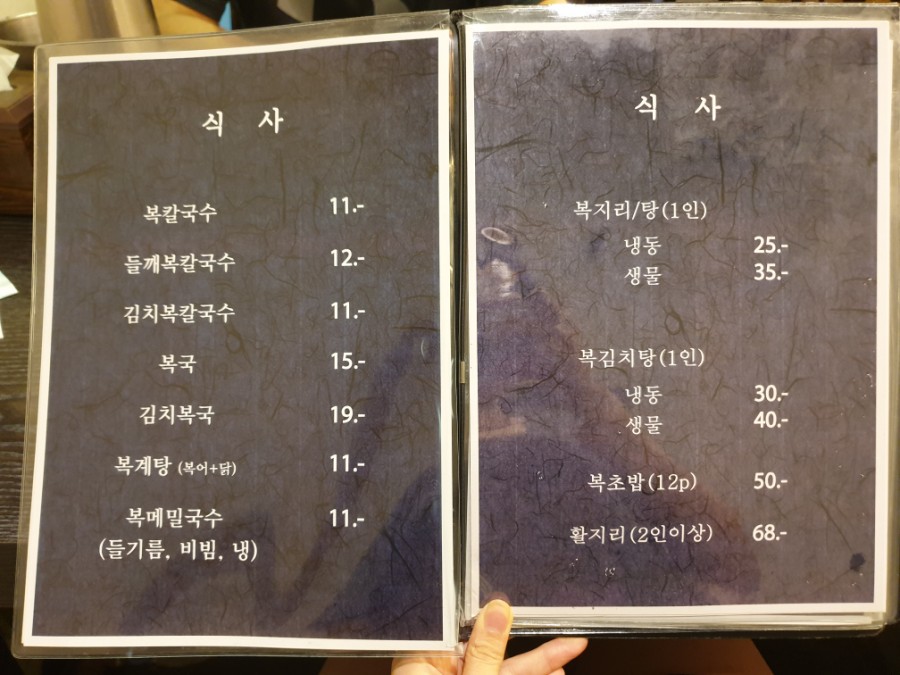 식 사
복칼국수 11.-
들깨복칼국수 12.-
김치복칼국수 11.-
복국 15.-
김치복국 19.-
복계탕 (복어+닭) 11.-
복메밀국수 11.-
(들기름, 비빔, 냉)
식 사
복지리/탕(1인)
냉동 25.-
생물 35.-
복김치탕(1인)
냉동 30.-
생물 40.-
복초밥(12p) 50.-
활지리(2인이상) 68.-